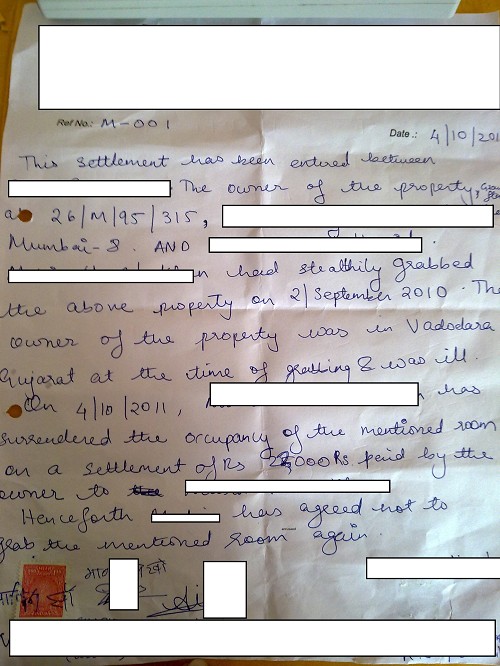 Ref No.: M-001
Date .: 4/10/201
This settlement has been entered between
The owner of the property,
26/M/95/315,
Mumbai-8. AND
had stealthily grabbed
the above property on 2/September 2010. The
owner of the property was in Vadodara
Gujarat at the time of grabbing & was ill.
On 4/10/2011, has
surrendered the occupancy of the mentioned room
on a settlement of Rs 000Rs. paid by the
owner to
Henceforth has agreed not to
grab the mentioned room again.